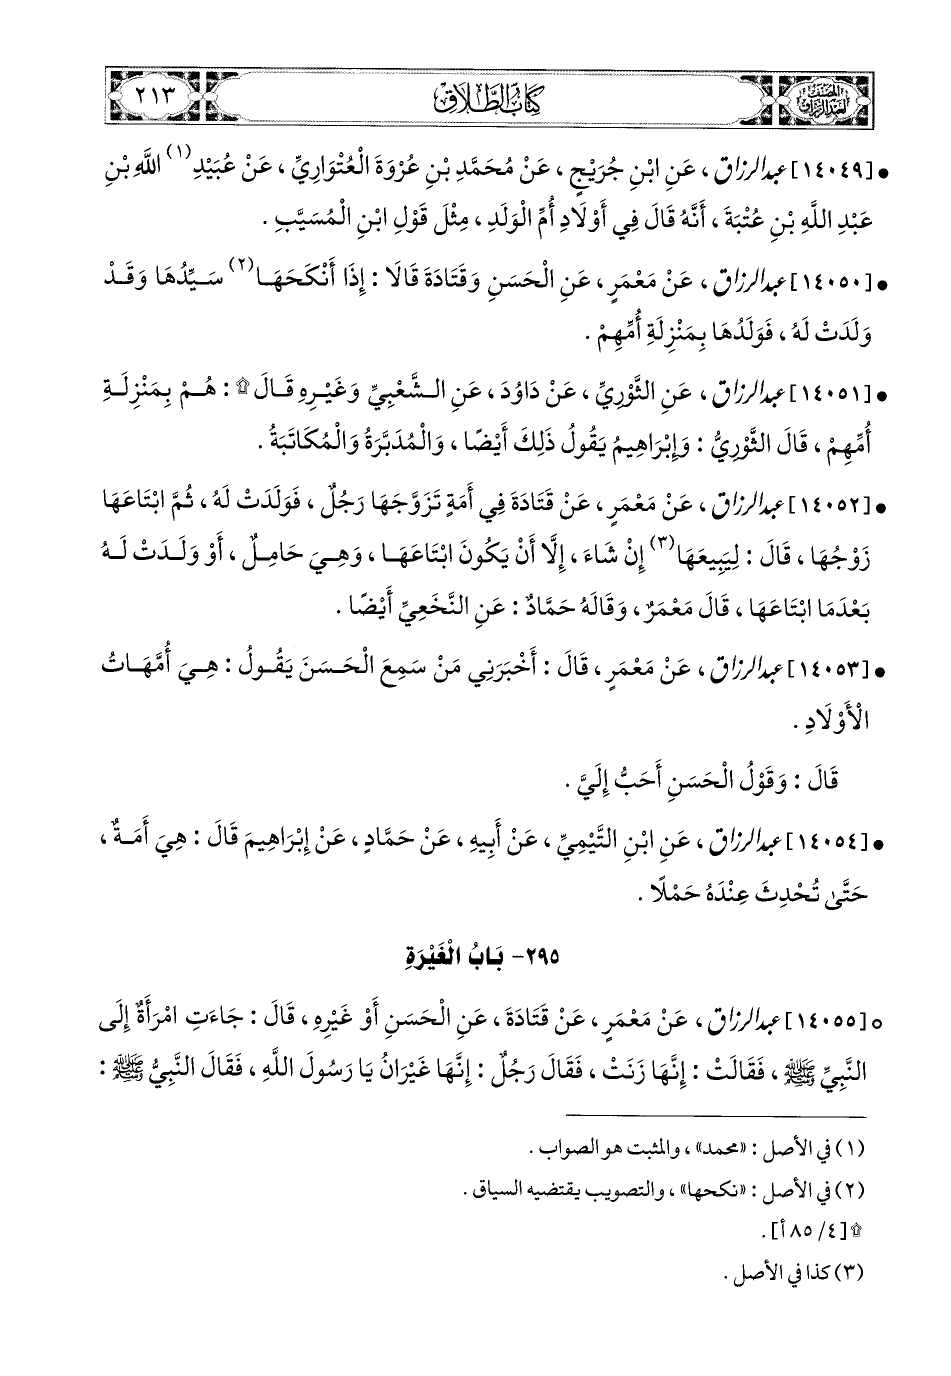 المصنف لعبد الرزاق
كتاب الطلاق
٢١٣
• [١٤٠٤٩] عبد الرزاق ، عَنِ ابْنِ جُرَيْجٍ ، عَنْ مُحَمَّدِ بْنِ عُرْوَةَ الْعُتْوَارِيِّ ، عَنْ عُبَيْدِ(١) اللَّهِ بْنِ
عَبْدِ اللَّهِ بْنِ عُتْبَةَ ، أَنَّهُ قَالَ فِي أَوْلَادِ أُمِّ الْوَلَدِ ، مِثْلَ قَوْلِ ابْنِ الْمُسَيَّبِ .
• [١٤٠٥٠] عبد الرزاق ، عَنْ مَعْمَرٍ ، عَنِ الْحَسَنِ وَقَتَادَةَ قَالَا : إِذَا أَنْكَحَهَا(٢) سَيِّدُهَا وَقَدْ
وَلَدَتْ لَهُ ، فَوَلَدُهَا بِمَنْزِلَةِ أُمِّهِمْ .
• [١٤٠٥١] عبد الرزاق ، عَنِ الثَّوْرِيِّ ، عَنْ دَاوُدَ ، عَنِ الشَّعْبِيِّ وَغَيْرِهِ قَالَ ۩ : هُمْ بِمَنْزِلَةِ
أُمِّهِمْ ، قَالَ الثَّوْرِيُّ : وَإِبْرَاهِيمُ يَقُولُ ذَلِكَ أَيْضًا ، وَالْمُدَبَّرَةُ وَالْمُكَاتَبَةُ .
• [١٤٠٥٢] عبد الرزاق ، عَنْ مَعْمَرٍ ، عَنْ قَتَادَةَ فِي أَمَةٍ تَزَوَّجَهَا رَجُلٌ ، فَوَلَدَتْ لَهُ ، ثُمَّ ابْتَاعَهَا
زَوْجُهَا ، قَالَ : لِيَبِيعَهَا(٣) إِنْ شَاءَ ، إِلَّا أَنْ يَكُونَ ابْتَاعَهَا ، وَهِيَ حَامِلٌ ، أَوْ وَلَدَتْ لَهُ
بَعْدَمَا ابْتَاعَهَا ، قَالَ مَعْمَرٌ ، وَقَالَهُ حَمَّادٌ : عَنِ النَّخَعِيِّ أَيْضًا .
• [١٤٠٥٣] عبد الرزاق ، عَنْ مَعْمَرٍ ، قَالَ : أَخْبَرَنِي مَنْ سَمِعَ الْحَسَنَ يَقُولُ : هِيَ أُمَّهَاتُ
الْأَوْلَادِ .
قَالَ : وَقَوْلُ الْحَسَنِ أَحَبُّ إِلَيَّ .
• [١٤٠٥٤] عبد الرزاق ، عَنِ ابْنِ التَّيْمِيِّ ، عَنْ أَبِيهِ ، عَنْ حَمَّادٍ ، عَنْ إِبْرَاهِيمَ قَالَ : هِيَ أَمَةٌ ،
حَتَّىٰ تُحْدِثَ عِنْدَهُ حَمْلًا .
٢٩٥- بَابُ الْغَيْرَةِ
○ [١٤٠٥٥] عبد الرزاق ، عَنْ مَعْمَرٍ ، عَنْ قَتَادَةَ ، عَنِ الْحَسَنِ أَوْ غَيْرِهِ ، قَالَ : جَاءَتِ امْرَأَةٌ إِلَى
النَّبِيِّ ﷺ ، فَقَالَتْ : إِنَّهَا زَنَتْ ، فَقَالَ رَجُلٌ : إِنَّهَا غَيْرَانُ يَا رَسُولَ اللَّهِ ، فَقَالَ النَّبِيُّ ﷺ :
(١) في الأصل : «محمد» ، والمثبت هو الصواب .
(٢) في الأصل : «نكحها» ، والتصويب يقتضيه السياق .
۩ [٤/ ٨٥ أ] .
(٣) كذا في الأصل .